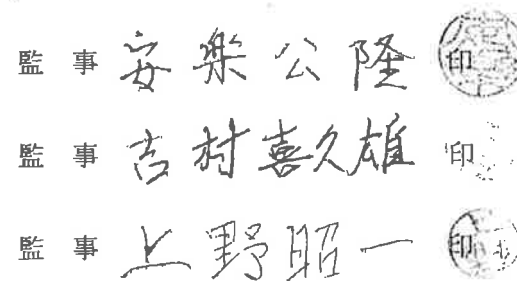 監 事 安楽公隆 印
監 事 吉村喜久雄 印
監 事 上野昭一 印